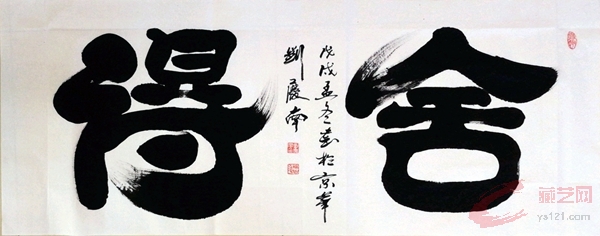 舍得
戊戌孟冬書於京華
劉慶南
藏艺网
ys121.com